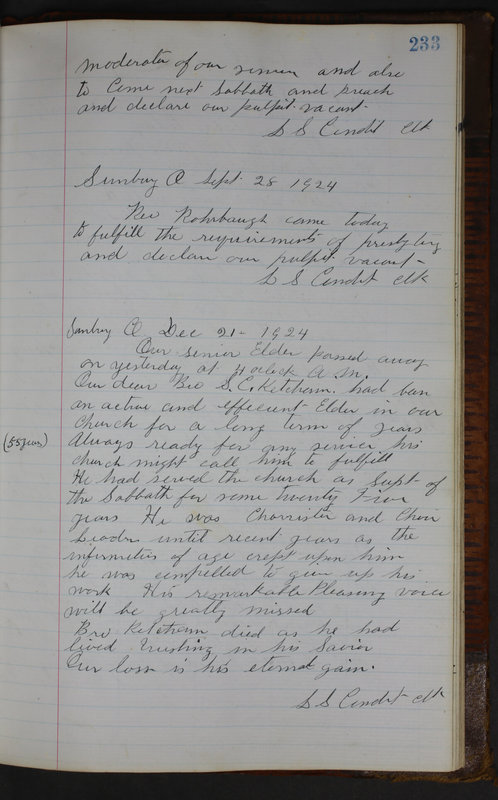 233
moderator of our session and also
to Come next Sabbath and preach
and declare our pulpit vacant.
S S Condit Clk
Sunbury O Sept. 28 1924
Rev Rohrbaugh came today
to fulfill the requirements of presbytery
and declare our pulpit vacant
S S Condit Clk
Sunbury O Dec 21 - 1924
Our senior Elder passed away
on yesterday at 4 oclock A. M.
Our dear Bro S. C. Ketcham. had ben
an active and efficient Elder in our
Church for a long term of years
(55 years)
Always ready for any service his
church might call him to fulfill
He had served the church as Supt of
the Sabbath for some twenty Five
years He was Chorrister and Choir
Leader until recent years as the
infirmities of age crept upon him
he was compelled to give up his
work His remarkable Pleasing voice
will be greatly missed
Bro Ketcham died as he had
lived trusting in his Savior
Our loss is his eternal gain.
S S Condit Clk